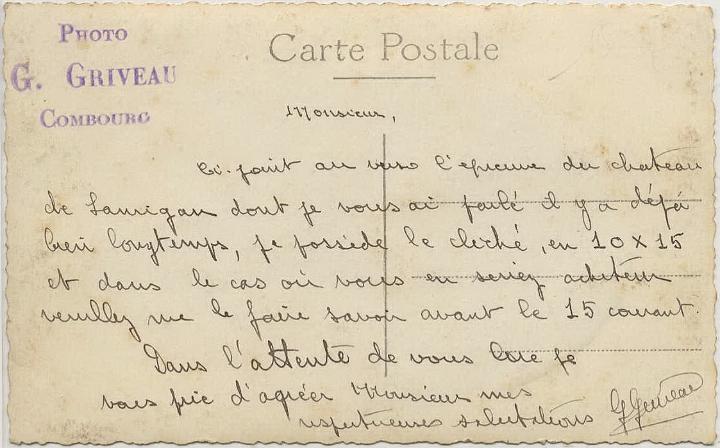 PHOTO
G. GRIVEAU
COMBOURG
Carte Postale
Monsieur,
Ci-joint au verso l'épreuve du chateau
de Lanrigan dont je vous ai parlé il y a déjà
bien longtemps, je possède le cliché, en 10 x 15
et dans le cas où vous en seriez acheteur
veuillez me le faire savoir avant le 15 courant.
Dans l'attente de vous lire je
vous prie d'agréer Monsieur mes
respectueuses salutations GGriveau